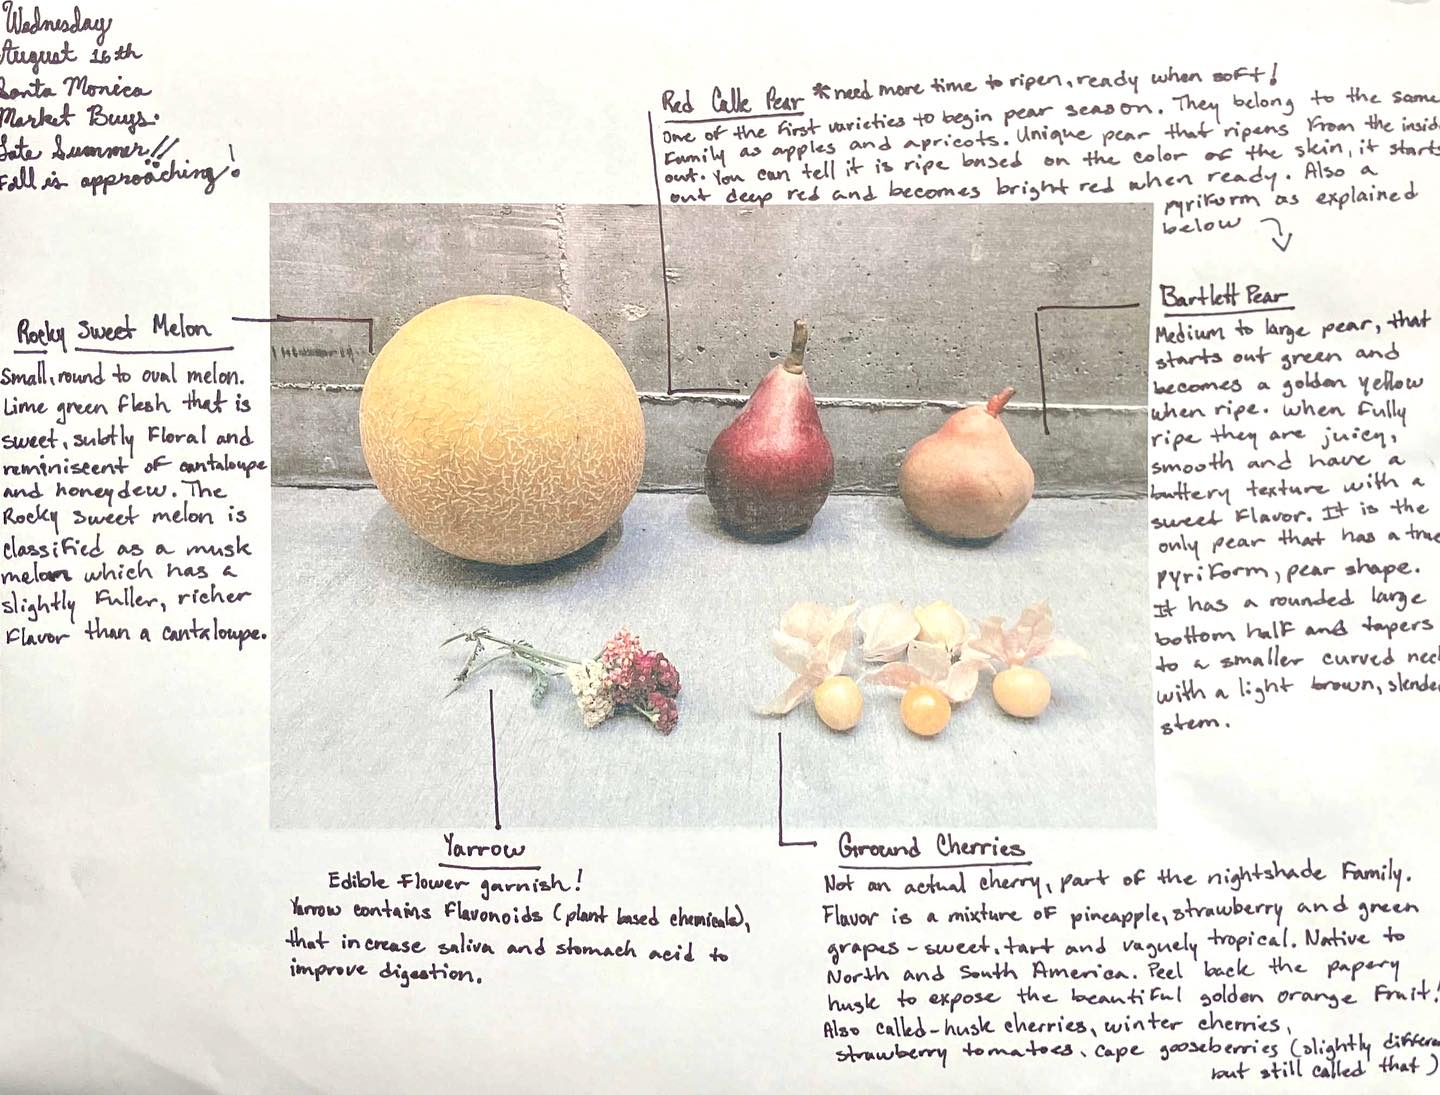 Wednesday
August 16th
Santa Monica
Market Buys.
Late Summer!!
Fall is approaching!
Red Calle Pear *need more time to ripen, ready when soft!
One of the first varieties to begin pear season. They belong to the same
family as apples and apricots. Unique pear that ripens from the inside
out. You can tell it is ripe based on the color of the skin, it starts
out deep red and becomes bright red when ready. Also a
pyriform as explained
below
Rocky Sweet Melon
Small, round to oval melon.
Lime green flesh that is
sweet, subtly floral and
reminiscent of cantaloupe
and honeydew. The
Rocky sweet melon is
classified as a musk
melon which has a
slightly fuller, richer
flavor than a cantaloupe.
Bartlett Pear
Medium to large pear, that
starts out green and
becomes a golden yellow
when ripe. When fully
ripe they are juicy,
smooth and have a
buttery texture with a
sweet flavor. It is the
only pear that has a true
pyriform, pear shape.
It has a rounded large
bottom half and tapers
to a smaller curved neck
with a light brown, slender
stem.
Yarrow
Edible flower garnish!
Yarrow contains flavonoids (plant based chemicals),
that increase saliva and stomach acid to
improve digestion.
Ground Cherries
Not an actual cherry, part of the nightshade family.
Flavor is a mixture of pineapple, strawberry and green
grapes - sweet, tart and vaguely tropical. Native to
North and South America. Peel back the papery
husk to expose the beautiful golden orange fruit!
Also called - husk cherries, winter cherries,
strawberry tomatoes, cape gooseberries (slightly different
but still called that)